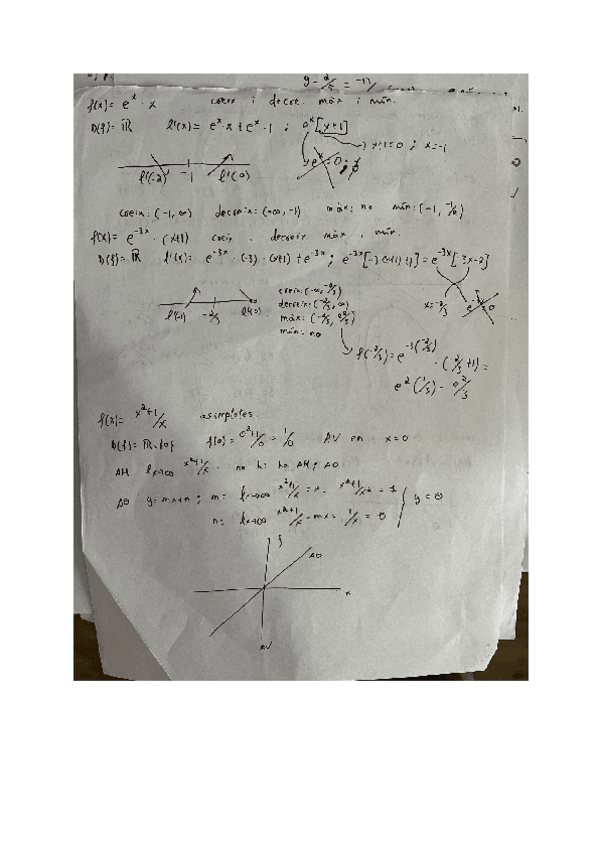 f(x) = e^x · x creix i decreix. màx i mín.
D(f) = ℝ f'(x) = e^x · x + e^x · 1 ; e^x [x+1]
x+1=0 ; x=-1
e^x = 0 ;
f'(-2) -1 f'(0)
creix: (-1, ∞) decreix: (-∞, -1) màx: no mín: (-1, -1/e)
f(x) = e^-3x · (x+1) creix i decreix màx i mín.
D(f) = ℝ f'(x) = e^-3x · (-3) · (x+1) + e^-3x ; e^-3x [-3(x+1)+1] = e^-3x [-3x-2]
x = -2/3 e^-3x = 0
f'(-1) -2/3 f'(0)
creix: (-∞, -2/3)
decreix: (-2/3, ∞)
màx: (-2/3, e^2/3)
mín: no
f(-2/3) = e^-3(-2/3) · (-2/3 + 1) =
e^2 (1/3) = e^2/3
f(x) = x^2+1/x asímptotes.
D(f) = ℝ - {0} f(0) = 0^2+1/0 = 1/0 AV en x=0
AH x^2+1/x no hi ha AH ; AO
AO y = mx+n ; m = x^2+1/x = x · x^2+1/x^2 = 1
n = x^2+1/x - mx = 1/x = 0 y =
AO
x
AV